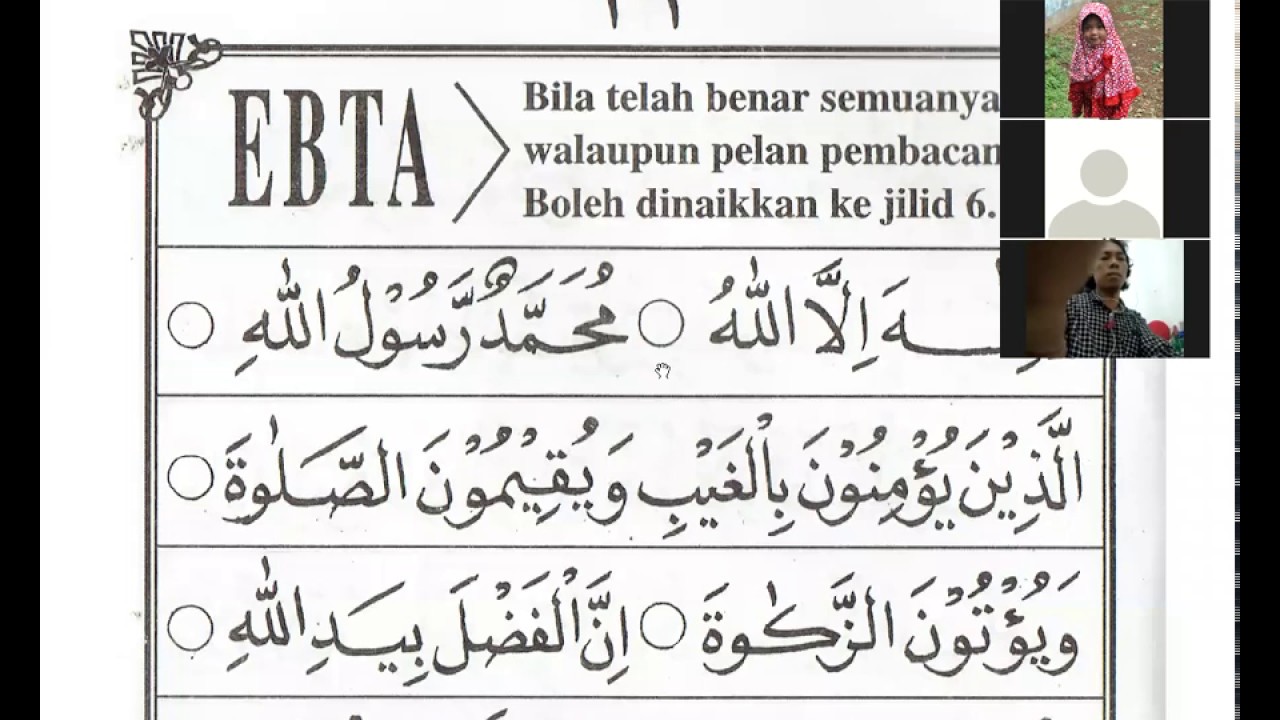 EBTA
Bila telah benar semuanya
walaupun pelan pembacan
Boleh dinaikkan ke jilid 6.
اِلَّا اللّٰهُ ○ مُحَمَّدٌ رَّسُوْلُ اللّٰهِ ○
الَّذِيْنَ يُؤْمِنُوْنَ بِالْغَيْبِ وَيُقِيْمُوْنَ الصَّلٰوةَ ○
وَيُؤْتُوْنَ الزَّكٰوةَ ○ اِنَّ الْفَضْلَ بِيَدِ اللّٰهِ ○